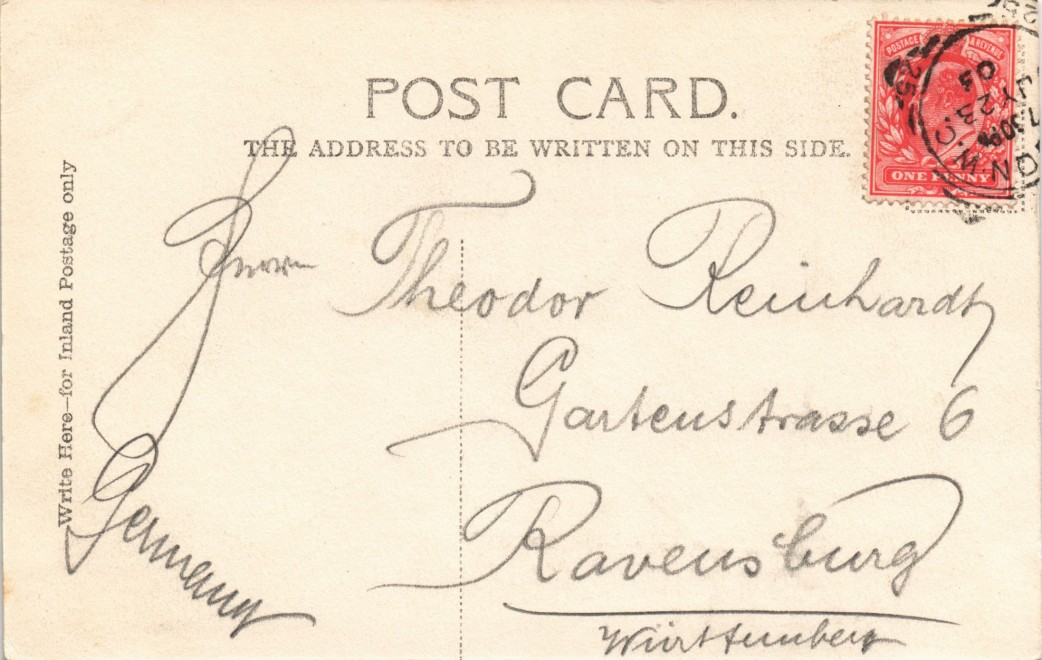 POST CARD.
THE ADDRESS TO BE WRITTEN ON THIS SIDE.
Write Here—for Inland Postage only
POSTAGE & REVENUE
ONE PENNY
JY 23
Herrn Theodor Reinhardt
Gartenstrasse 6
Ravensburg
Württemberg
Germany